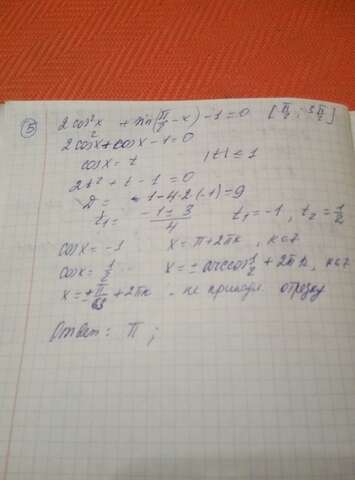 5 2cos²x + sin(π/2 - x) - 1 = 0 [π/2 ; 3π/2]
2cos²x + cosx - 1 = 0
cosx = t |t| ≤ 1
2t² + t - 1 = 0
D = 1 - 4·2·(-1) = 9
t₁ = (-1 ± 3)/4 t₁ = -1 , t₂ = 1/2
cosx = -1 x = π + 2πk , k∈Z
cosx = 1/2 x = ± arccos 1/2 + 2πk, k∈Z
x = ± π/3 + 2πk - не принадл. отрезку
Ответ: π ;